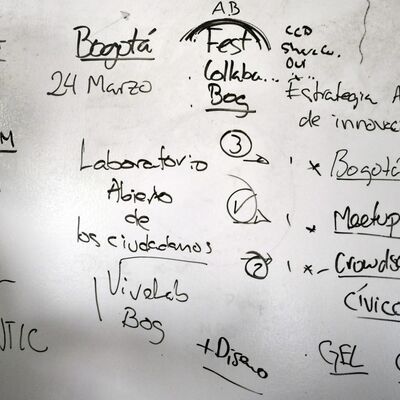 AB
Bogotá
24 Marzo
. Fest
. Collaba...
. Bog
CCD
OUI
Estrategia A
de innovac
Laboratorio
Abierto
de
los ciudadanos
ViveLab
Bog
+ Diseño
3
* Bogotá
* Meetup
2
* Crowds
Cívico
. GEL
M
NTIC